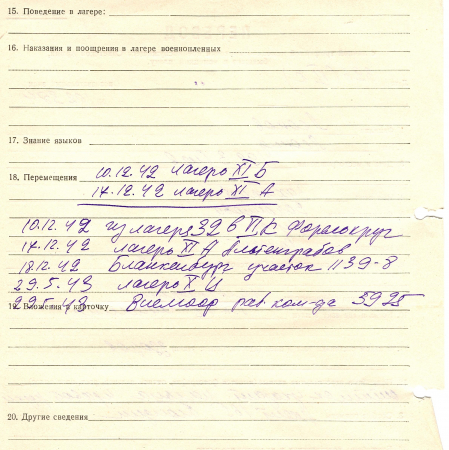 15. Поведение в лагере:
16. Наказания и поощрения в лагере военнопленных
17. Знание языков
10.12.42 лагерь XI Б
18. Перемещения
14.12.42 лагерь XI А
10.12.42 из лагеря 329 в
14.12.42 лагерь XI А Альтенграбов
18.12.42 Бланкенбург участок 1139-8
29.5.43 лагерь X
29.5.43 раб. ком-да 5925
19. Вложения в карточку
20. Другие сведения